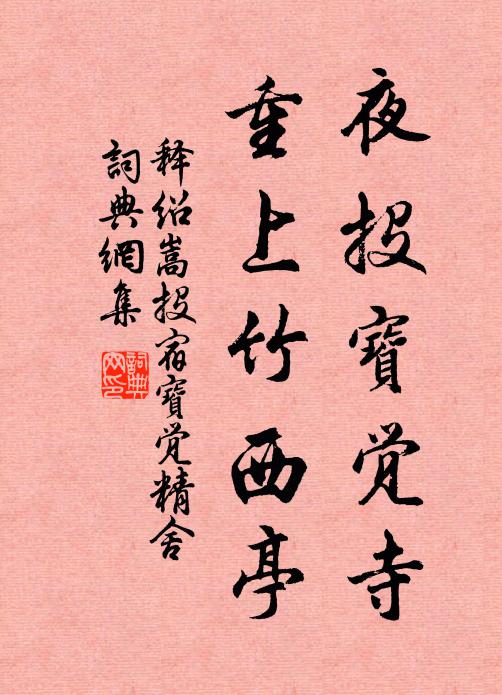 夜投寶覺寺
重上竹西亭
釋紹嵩投宿寶覺精舍
詞典網集
詞典網印